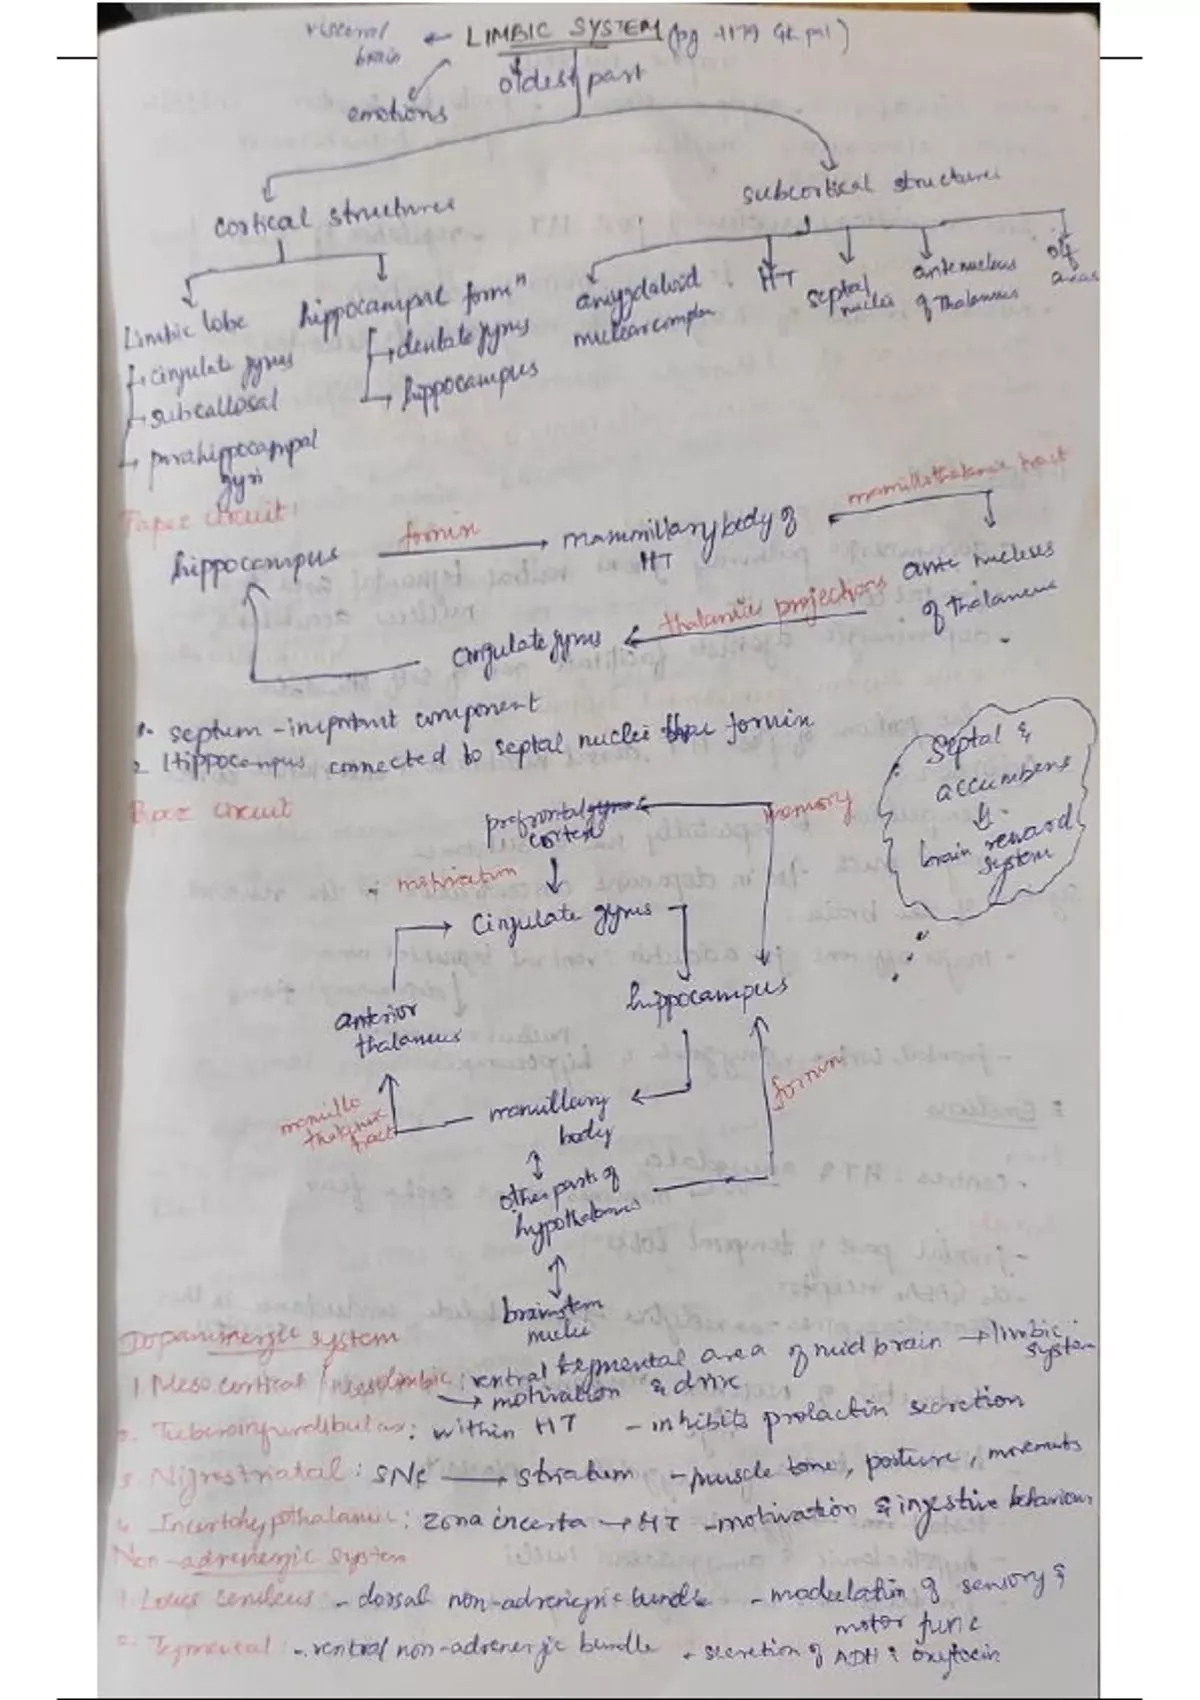 visceral brain ← LIMBIC SYSTEM (pg -1179 Gk pal)
oldest part
emotions
cortical structures
subcortical structures
Limbic lobe
hippocampal formⁿ
amygdaloid nuclear complex
HT
septal nuclei
ante nucleus of Thalamus
olf areas
→ cingulate gyrus
→ dentate gyrus
→ subcallosal
→ hippocampus
→ parahippocampal gyri
Papez circuit:
mamillothalamic tract
hippocampus
fornix
mammillary body of HT
ante nucleus of Thalamus
thalamic projections
cingulate gyrus
1. septum - important component
2. Hippocampus connected to septal nuclei thru fornix
Papez circuit
Septal & accumbens
↓
brain reward system
prefrontal cortex
memory
motivation
Cingulate gyrus
hippocampus
anterior thalamus
fornix
mamillo thalamic tract
mamillary body
other parts of hypothalamus
brainstem nuclei
Dopaminergic system
1. Mesocortical / mesolimbic: ventral tegmental area of midbrain → limbic system
→ motivation & drive
2. Tuberoinfundibular: within HT - inhibits prolactin secretion
3. Nigrostriatal: SNC → striatum - muscle tone, posture, movements
4. Incertohypothalamic: Zona incerta → HT - motivation & ingestive behaviour
Non-adrenergic system
1. Locus ceruleus - dorsal non-adrenergic bundle - modulation of sensory & motor func
2. Tegmental: - ventral non-adrenergic bundle - secretion of ADH & oxytocin